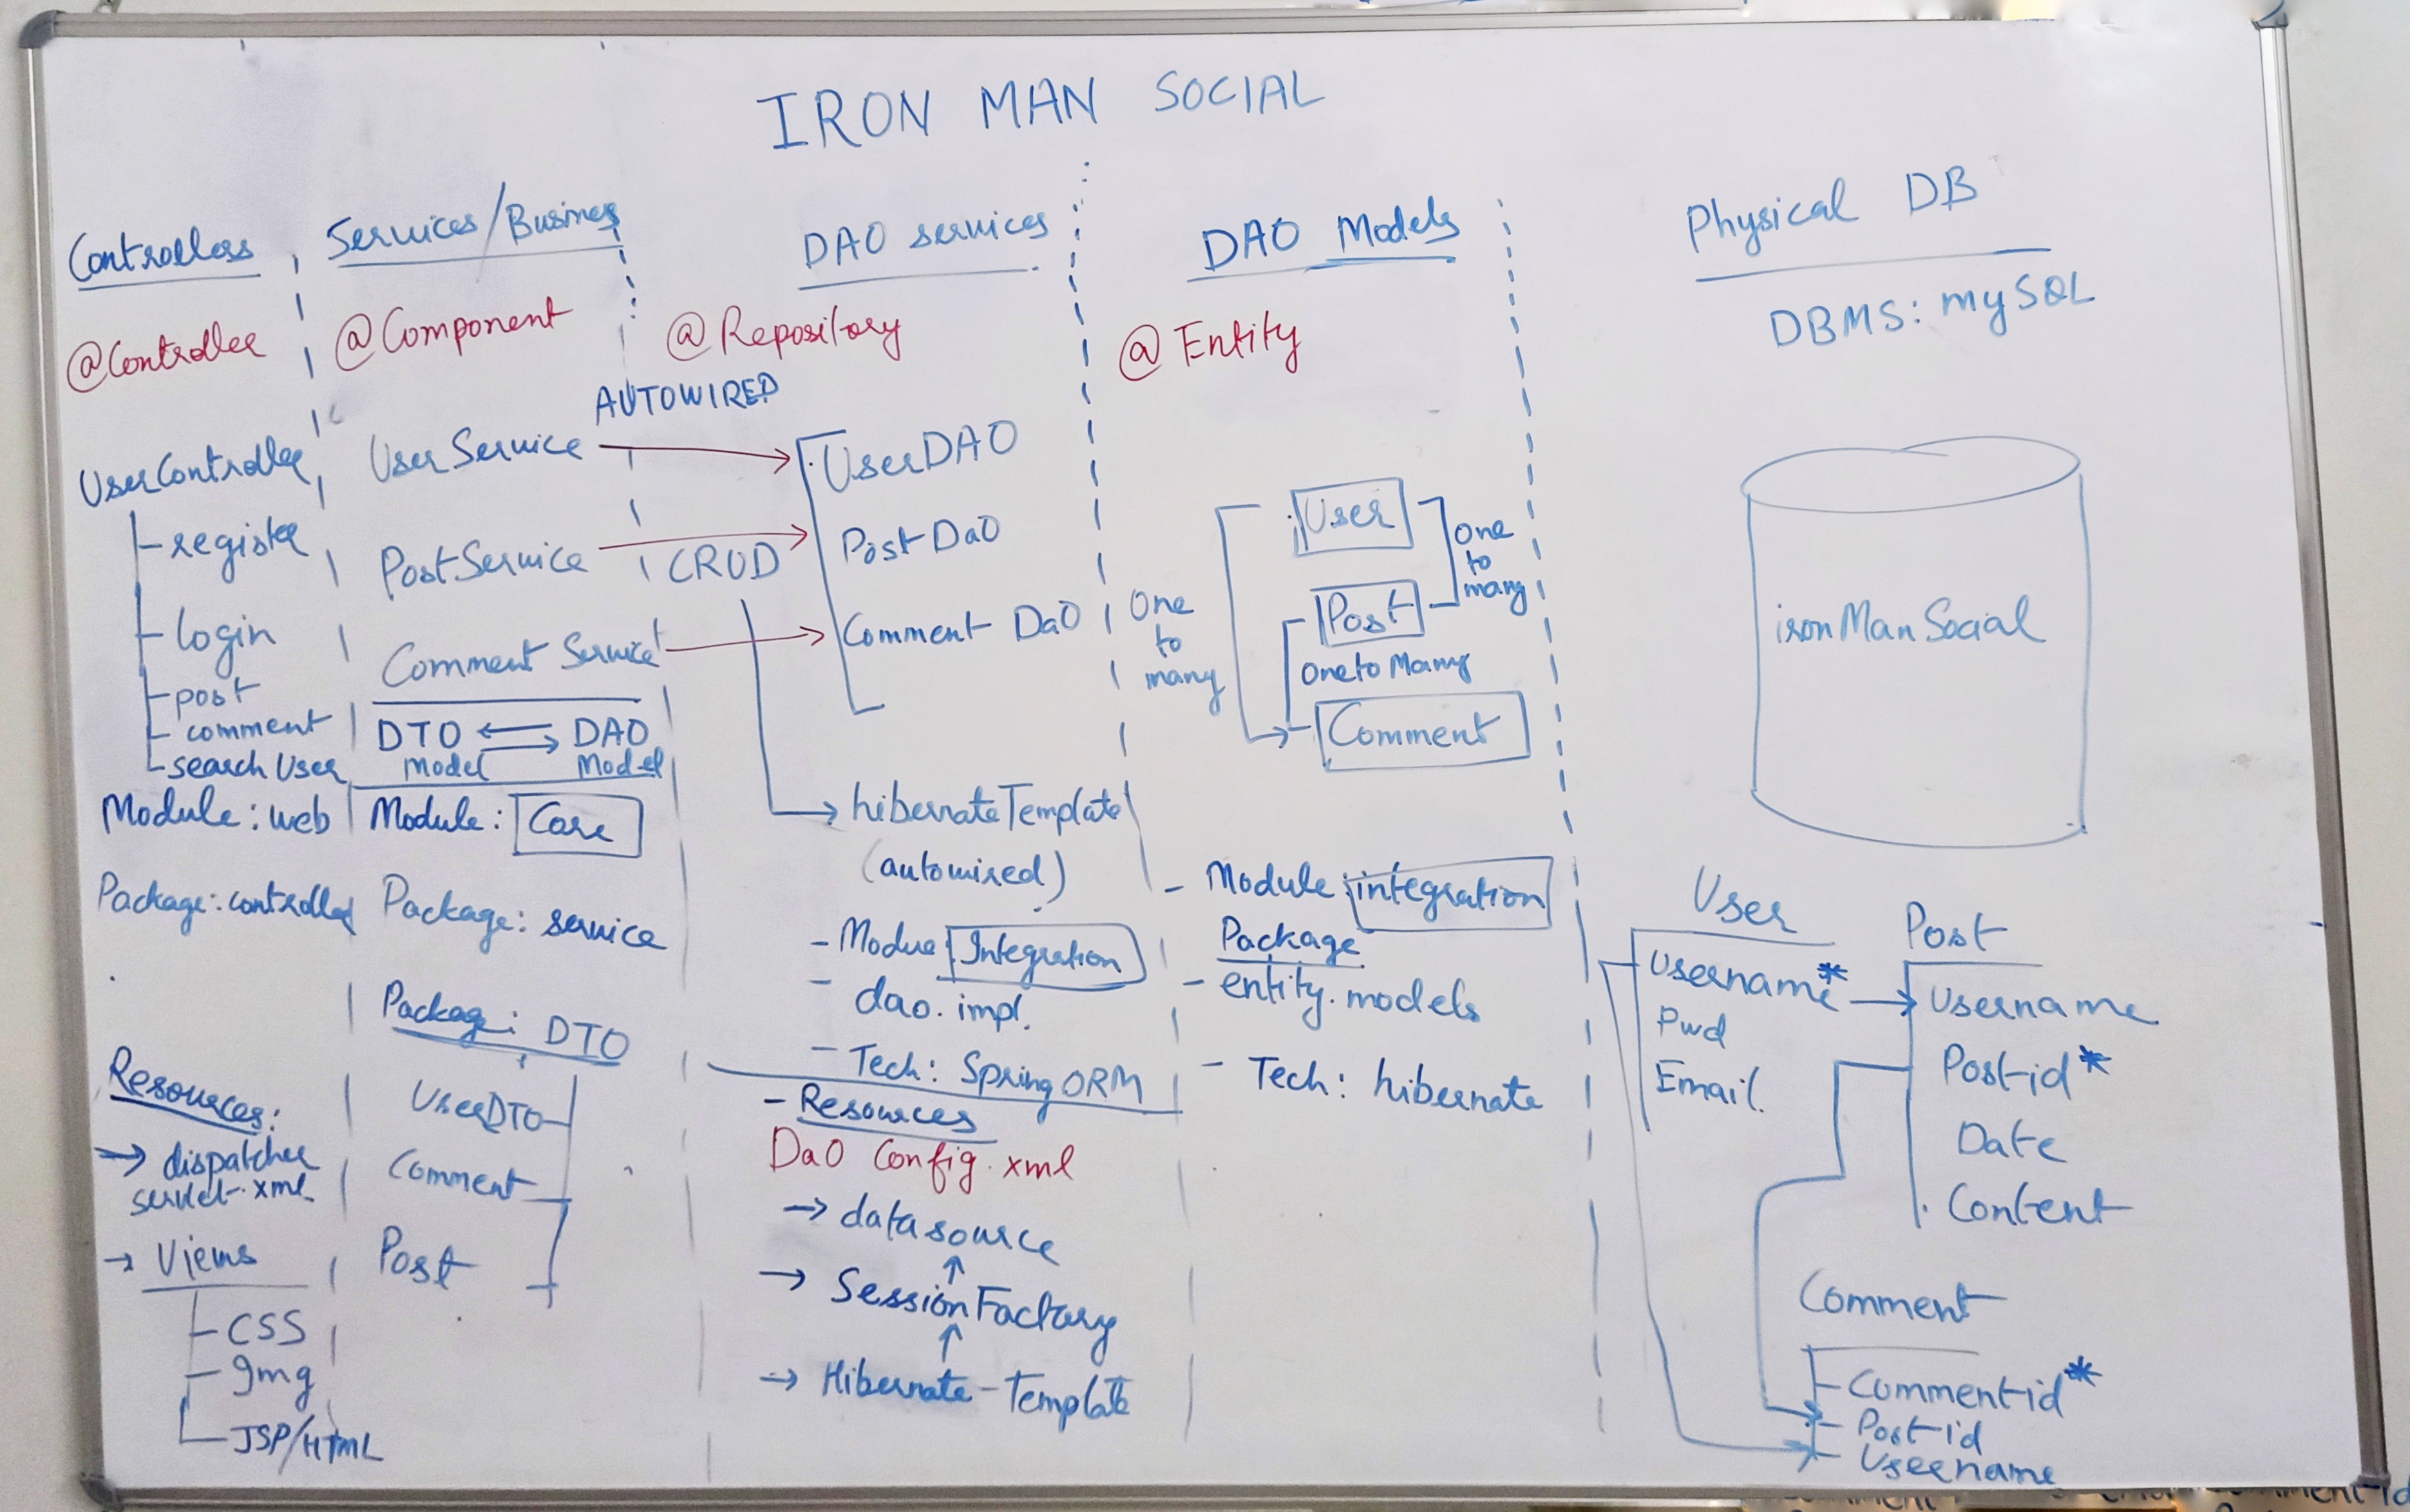 IRON MAN SOCIAL
Controllers
@Controller
UserController
register
login
post
comment
search User
Module: web
Package: controller
Resources:
→ dispatcher
servlet.xml
→ Views
CSS
Img
JSP/HTML
Services/Business
@Component
User Service
Post Service
Comment Service
DTO ⇄ DAO
Model Model
Module: Core
Package: service
Package: DTO
UserDTO
Comment
Post
DAO services
@Repository
AUTOWIRED
UserDAO
CRUD
Post DaO
Comment DaO
→ hibernateTemplate
(autowired)
- Modue: Integration
- dao.impl.
- Tech: Spring ORM
- Resources
DaO Config.xml
→ datasource
↑
→ SessionFactory
↑
→ Hibernate-Template
DAO Models
@Entity
User
One
to
many
Post
One
to
many
One to Many
Comment
- Module: integration
Package
- entity.models
- Tech: hibernate
Physical DB
DBMS: mySQL
ironManSocial
User
Username*
Pwd
Email.
Post
Username
Post-id*
Date
Content
Comment
Comment-id*
Post-id
Username